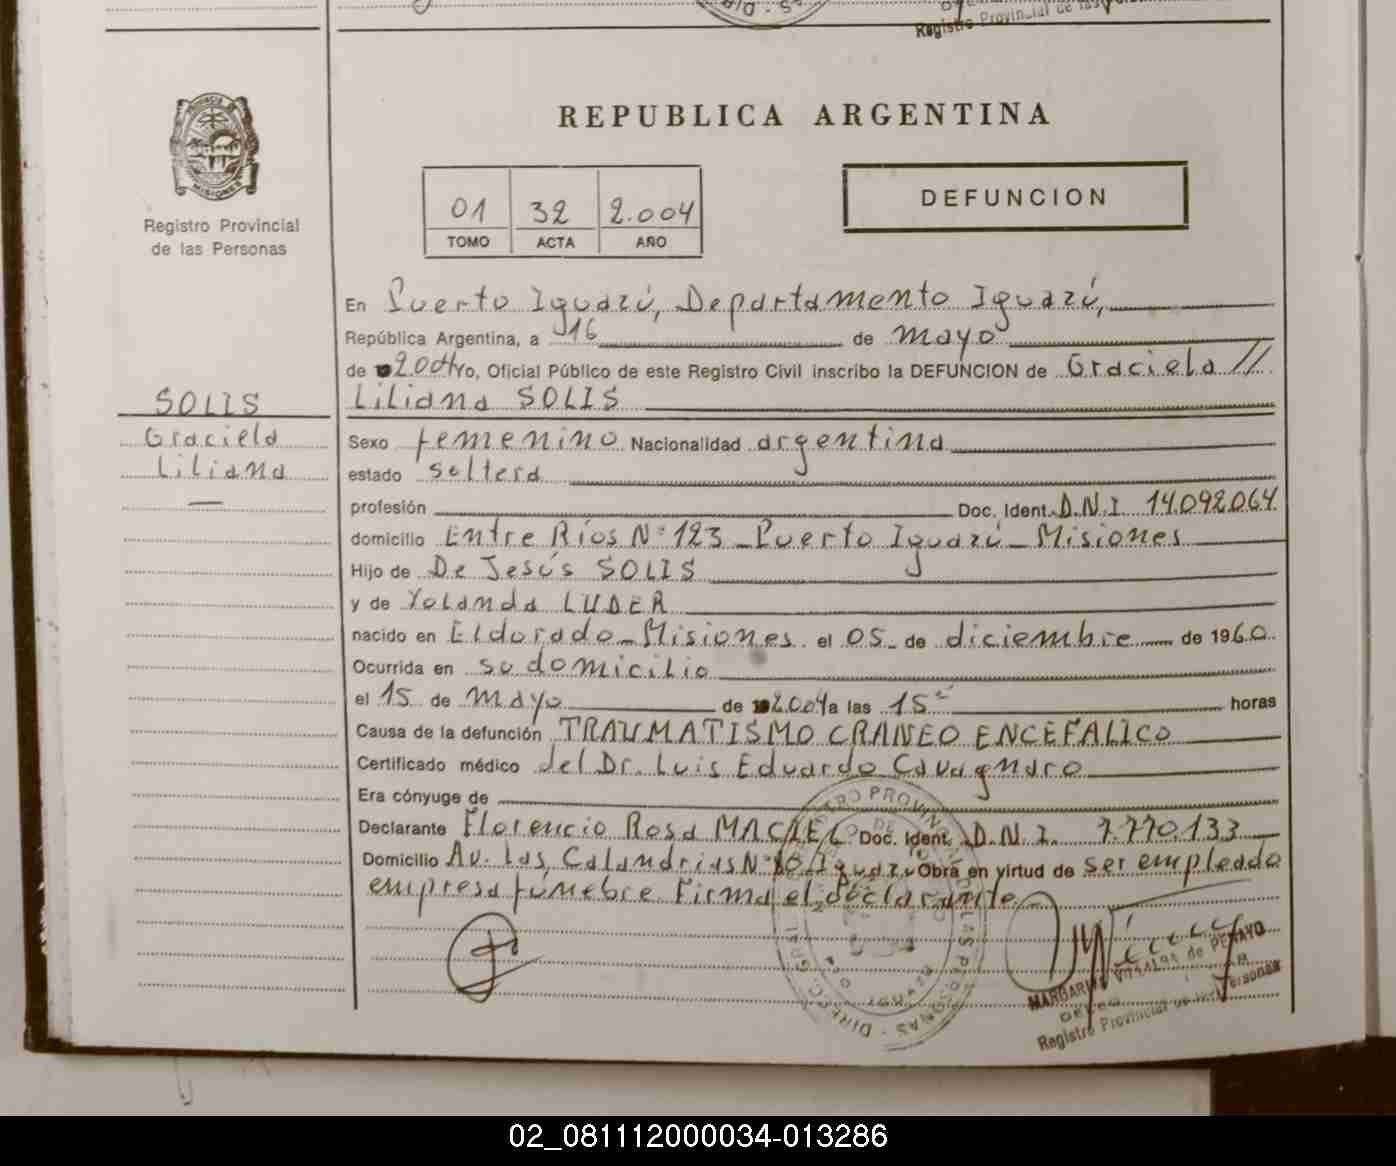 Registro Provincial de las
PROVINCIA DE
MISIONES
Registro Provincial
de las Personas
REPUBLICA ARGENTINA
01 32 2.004
TOMO ACTA AÑO
DEFUNCION
En Puerto Iguazú, Departamento Iguazú,
República Argentina, a 16 de mayo
de 2.004 yo, Oficial Público de este Registro Civil inscribo la DEFUNCION de Graciela //
Liliana SOLIS
SOLIS
Graciela
Liliana
—
Sexo femenino Nacionalidad argentina
estado soltera
profesión Doc. Ident. D.N.I. 14.092.064
domicilio Entre Ríos Nº 123 _ Puerto Iguazú _ Misiones
Hijo de De Jesús SOLIS
y de Yolanda LUDER
nacido en Eldorado _ Misiones el 05 de diciembre de 1960
Ocurrida en su domicilio
el 15 de mayo de 2.004 a las 15 horas
Causa de la defunción TRAUMATISMO CRANEO ENCEFALICO
Certificado médico del Dr. Luis Eduardo Cavagnaro
Era cónyuge de
Declarante Florencio Rosa MACIEL Doc. Ident. D.N.I. 7.770.133
Domicilio Av. Las Calandrias Nº Iguazú Obra en virtud de ser empleado
empresa fúnebre. Firma el declarante.
MARGARITA de PENAYO
Registro Provincial de las Personas
02_081112000034-013286